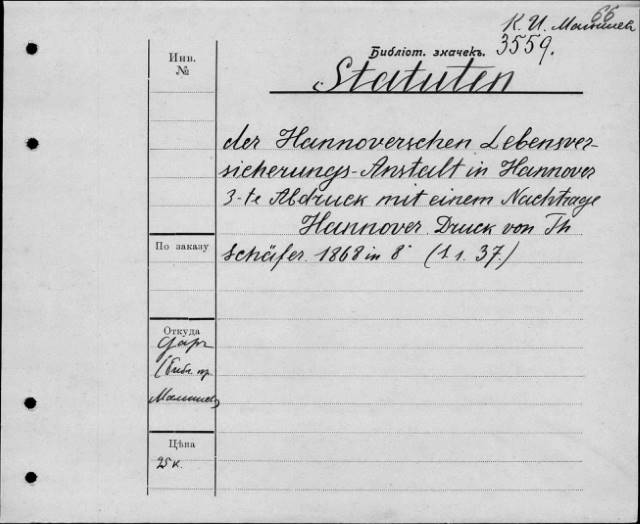 66
К. И. Малышев
Библіот. значекъ.
3559.
Инв.
№
Statuten
der Hannoverschen Lebensver-
sicherungs-Anstalt in Hannover
3-te Abdruck mit einem Nachtrage
Hannover Druck von Th
Schäfer. 1868 in 8° (1 1. 37.)
По заказу
Откуда
Даръ
(библ. пр.
Малышев
Цѣна
25 к.